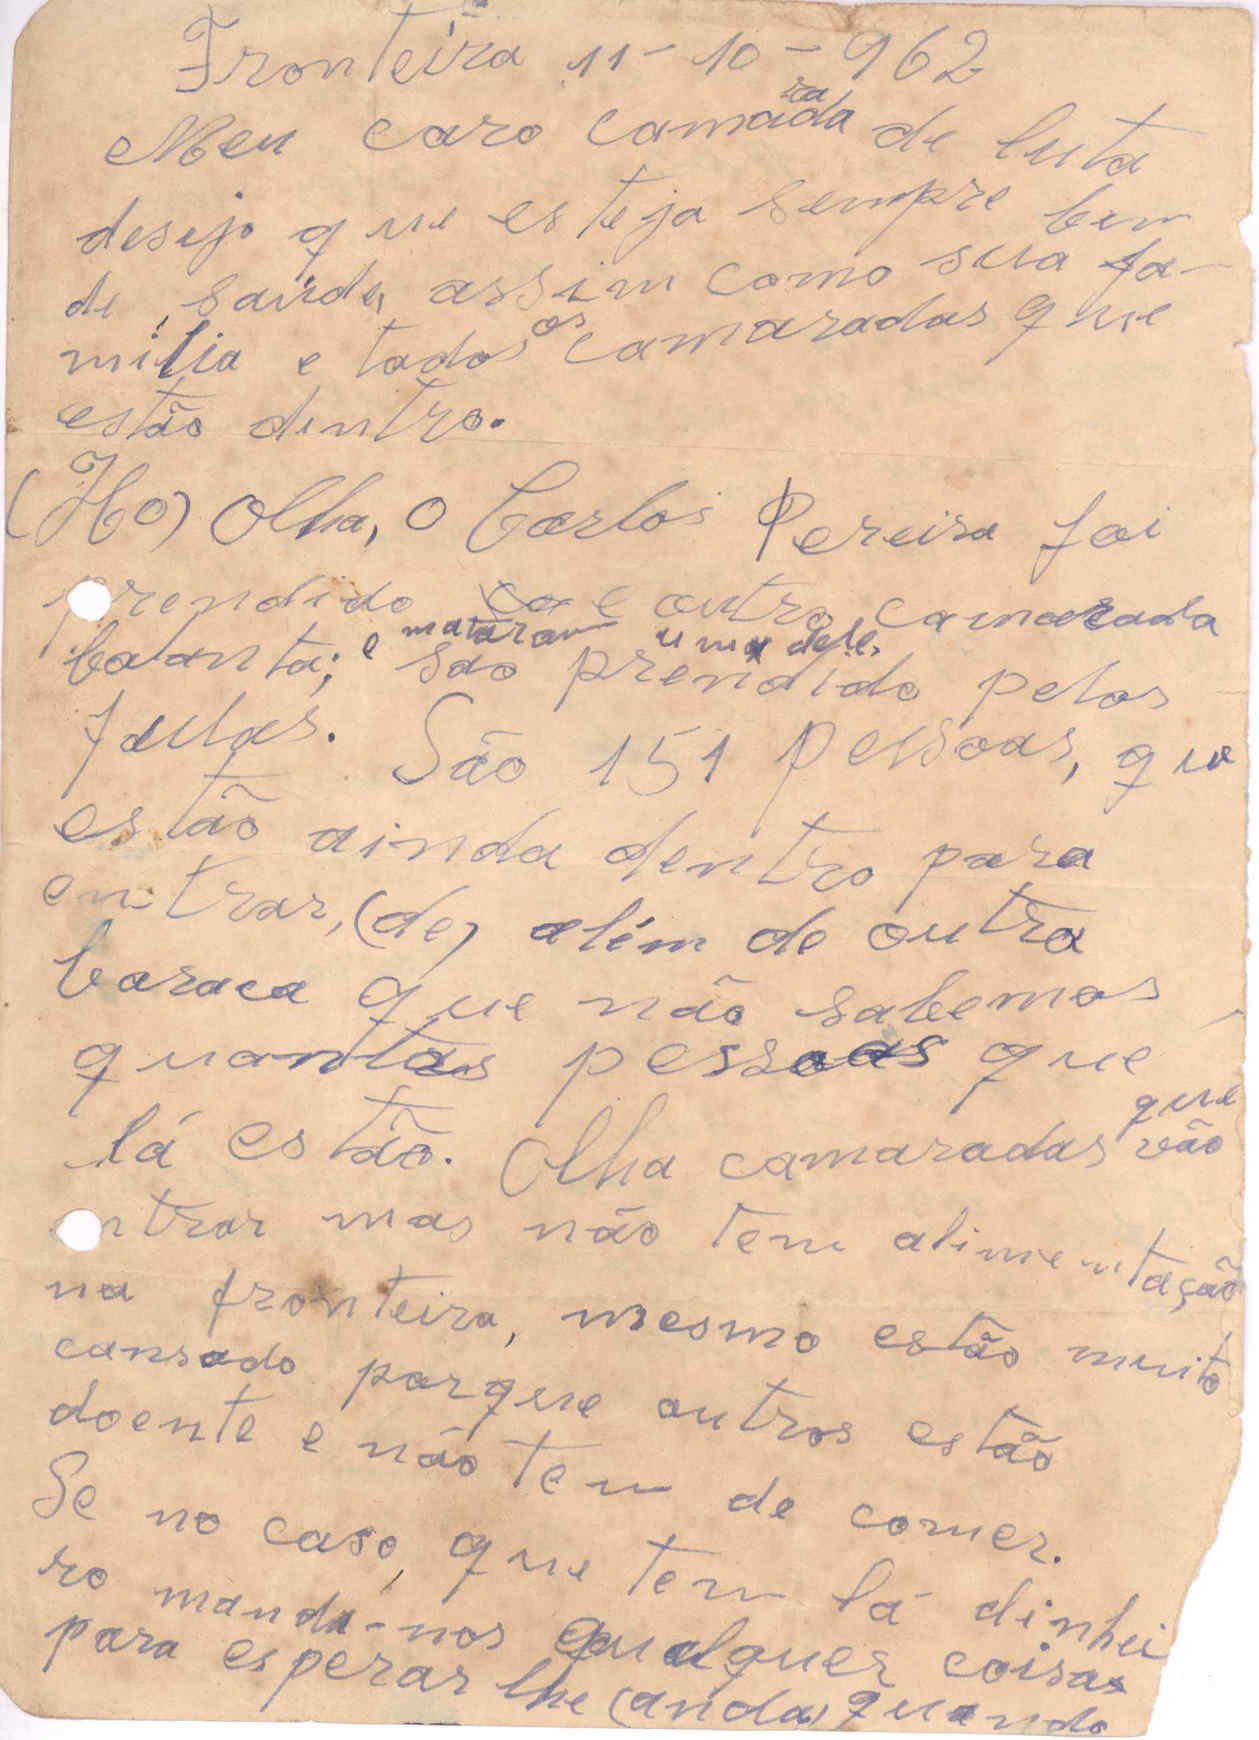 Fronteira 11-10-962
Meu caro camarada de luta
desejo que esteja sempre bem
de saúde, assim como sua fa-
mília e todos os camaradas que
estão dentro.
(Ho) Olha, o Carlos Pereira foi
prendido co e outro camarada
e mataram uma dele,
baanta; são prendido pelos
fulas. São 151 pessoas, que
estão ainda dentro para
entrar, (de) além de outra
baraca que não sabemos
quantas pessoas que
lá estão. Olha camaradas que vão
entrar mas não tem alimentação
na fronteira, mesmo estão muito
cansado porque outros estão
doente e não tem de comer.
Se no caso, que tem lá dinhei
ro manda-nos qualquer coisas
para esperar lhe (anda) quando